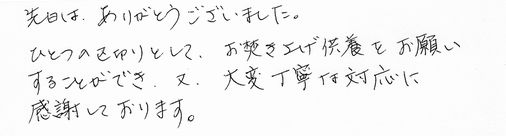 先日は、ありがとうございました。
ひとつの区切りとして、お焚き上げ供養をお願い
することができ、又、大変丁寧な対応に
感謝しております。